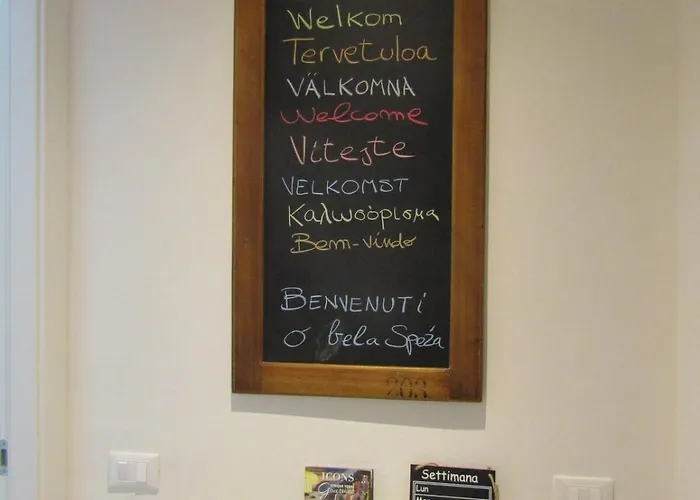 Welkom
Tervetuloa
VÄLKOMNA
Welcome
Vítejte
VELKOMST
Καλωσόρισμα
Bem-vindo
BENVENUTi
O bela Speźa
203
ICONS
Settimana
Lun